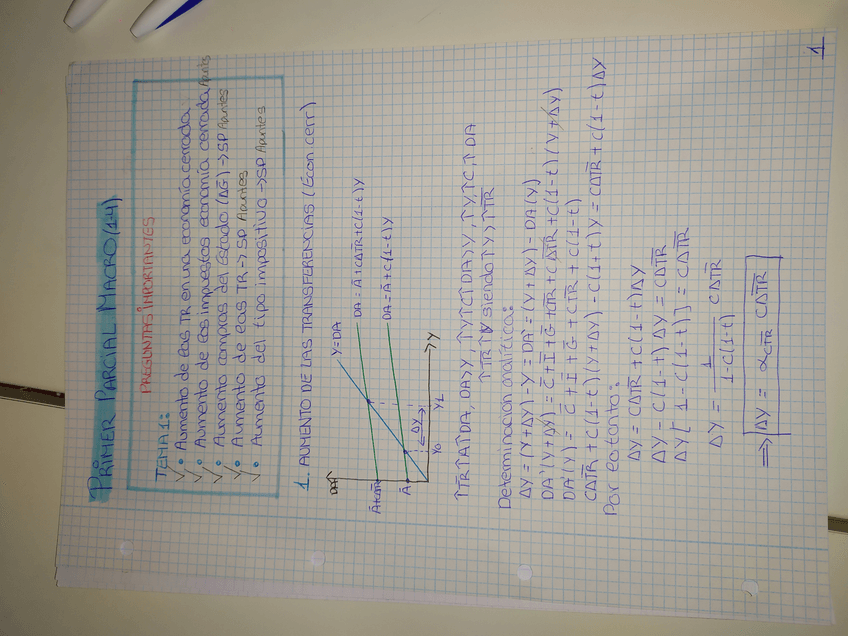 PRIMER PARCIAL MACRO (1-4)
PREGUNTAS IMPORTANTES
TEMA 1:
✓• Aumento de las TR en una economía cerrada
✓• Aumento de los impuestos economía cerrada Apuntes
✓• Aumento compras del Estado (ΔG) → SP Apuntes
✓• Aumento de las TR → SP Apuntes
✓• Aumento del tipo impositivo → SP Apuntes
1. AUMENTO DE LAS TRANSFERENCIAS (Econ. cerr)
DA
Y=DA
DA = Ā + CΔT̄R̄ + C(1-t)Y
DA = Ā + C(1-t)Y
Ā
ΔY
Y₀ Y₁
Y
Determinación analítica:
ΔY = (Y+ΔY) - Y = DA' = (Y+ΔY) - DA(Y)
DA'(Y+ΔY) = C̄ + Ī + Ḡ + CT̄R̄ + CΔT̄R̄ + C(1-t)(Y+ΔY)
DA(Y) = C̄ + Ī + Ḡ + CT̄R̄ + C(1-t)
CΔT̄R̄ + C(1-t)(Y+ΔY) - C(1+t)Y = CΔT̄R̄ + C(1-t)ΔY
Por lo tanto:
ΔY = CΔT̄R̄ + C(1-t)ΔY
ΔY - C(1-t)ΔY = CΔT̄R̄
ΔY[1-C(1-t)] = CΔT̄R̄
ΔY = 1/1-C(1-t) CΔT̄R̄
⇒ ΔY = α CT̄R̄ CΔT̄R̄
1